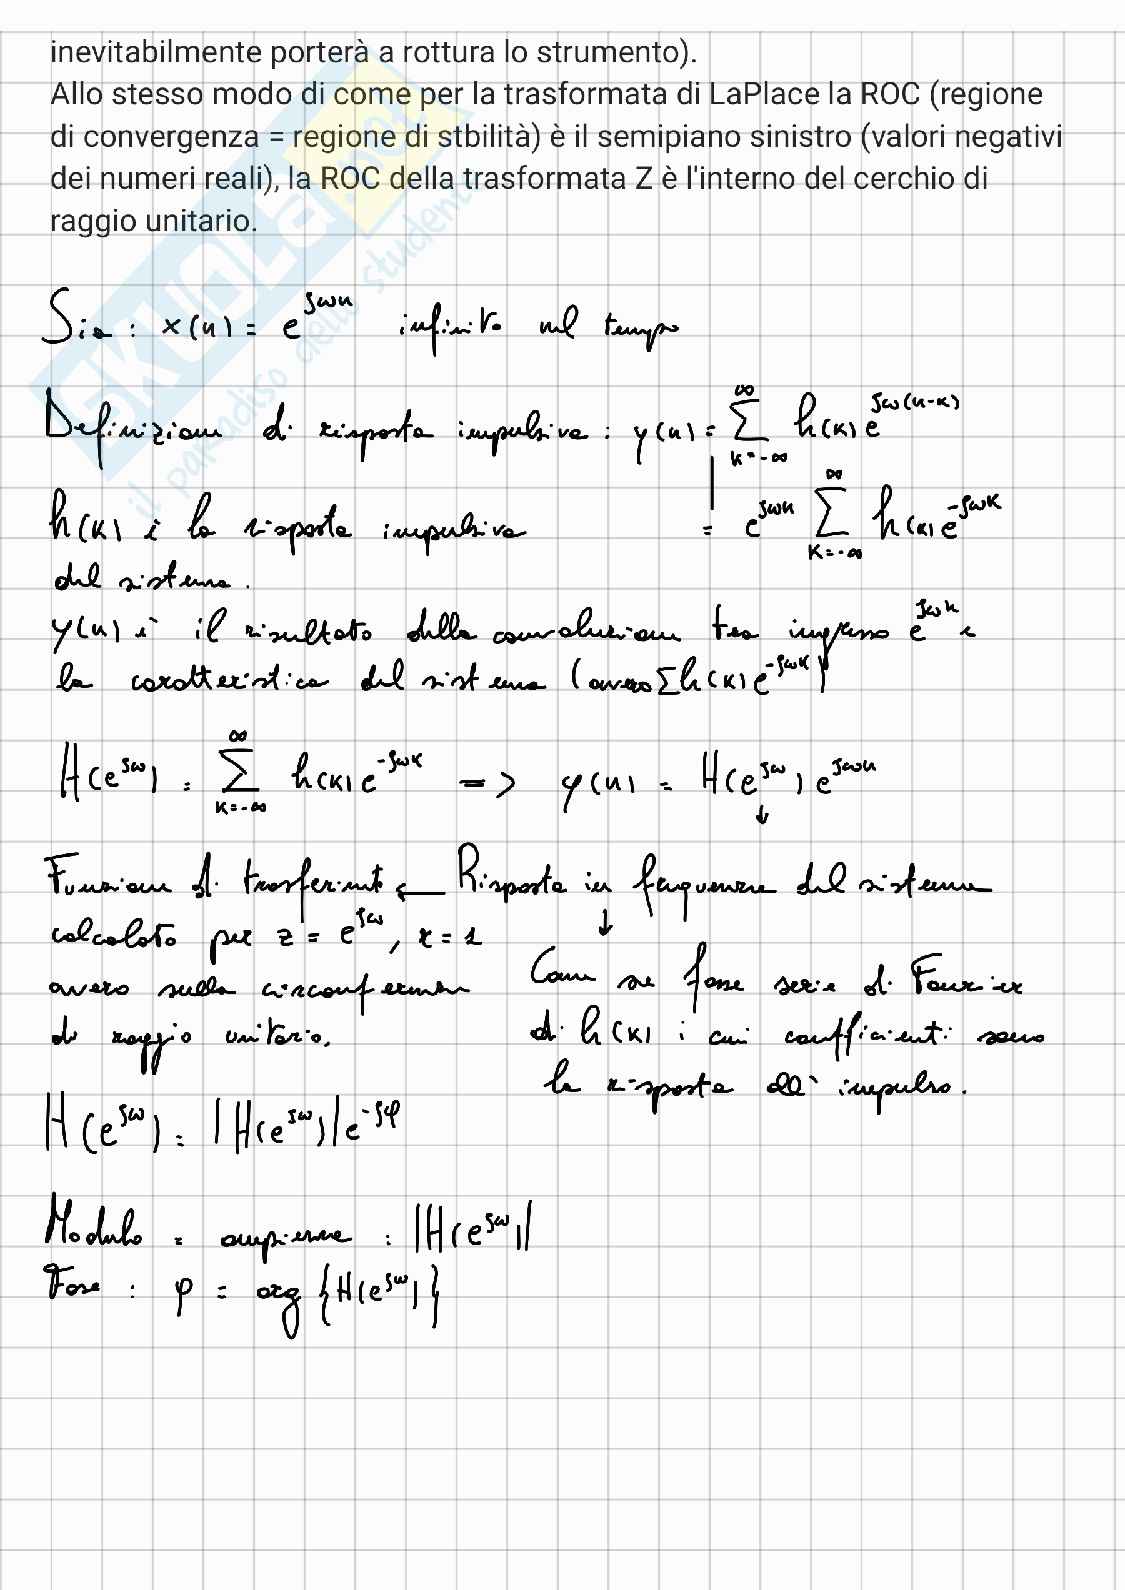 inevitabilmente porterà a rottura lo strumento).
Allo stesso modo di come per la trasformata di LaPlace la ROC (regione
di convergenza = regione di stbilità) è il semipiano sinistro (valori negativi
dei numeri reali), la ROC della trasformata Z è l'interno del cerchio di
raggio unitario.
SKUOLA.net
il paradiso dello studente
Sia : x(n) = e^{jωn} infinito nel tempo
Definizione di risposta impulsiva : y(n) = ∑_{k=-∞}^{∞} h(k) e^{jω(n-k)}
= e^{jωn} ∑_{k=-∞}^{∞} h(k) e^{-jωk}
h(k) è la risposta impulsiva
del sistema.
y(n) è il risultato della convoluzione tra ingresso e^{jωn} e
la caratteristica del sistema (ovvero ∑ h(k) e^{-jωk})
H(e^{jω}) = ∑_{k=-∞}^{∞} h(k) e^{-jωk} => y(n) = H(e^{jω}) e^{jωn}
↓
Funzione di trasferimento ← Risposta in frequenza del sistema
calcolato per z = e^{jω}, r = 1
ovvero sulla circonferenza
di raggio unitario.
↓
Come se fosse serie di Fourier
di h(k) i cui coefficienti sono
la risposta all'impulso.
H(e^{jω}) = |H(e^{jω})| e^{-jφ}
Modulo = ampiezza : |H(e^{jω})|
Fase : φ = arg {H(e^{jω})}